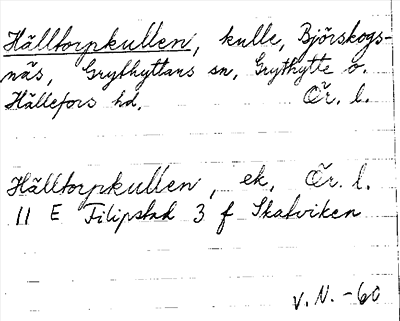 Hälltorpkullen, kulle, Björskogs-
näs, Grythyttans sn, Grythytte o.
Hällefors hd. Ör. l.
Hälltorpkullen, ek, Ör. l.
11 E Filipstad 3 f Skatviken
V. N. -60